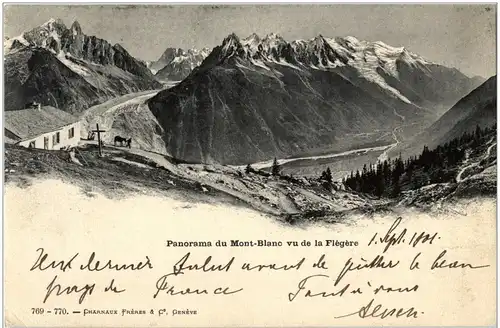 Panorama du Mont-Blanc vu de la Flégère
1. Sept. 1901.
Un dernier Salut avant de quitter ce beau
pays de France Tout à vous
769 - 770. – CHARNAUX FRÈRES & Cº, GENÈVE